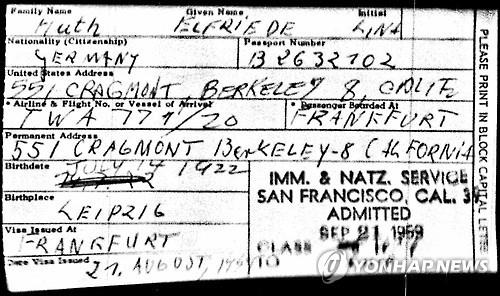 Family Name Given Name Initial
Huth ELFRIEDE LINA
Nationality (Citizenship) Passport Number
GERMANY B2632702
United States Address
551 CRAGMONT, BERKELEY 8, CALIF
Airline & Flight No. or Vessel of Arrival Passenger Boarded At
TWA 771/20 FRANKFURT
Permanent Address
551 CRAGMONT BerKELEY-8 CALIFORNIA
Birthdate JULY 14 1922
Birthplace
LEIPZIG
Visa Issued At
FRANGFURT
Date Visa Issued
21. AUGUST,
IMM. & NATZ. SERVICE
SAN FRANCISCO, CAL.
ADMITTED
SEP 21 1959
CLASS
TO
PLEASE PRINT IN BLOCK CAPITAL LETTE
YONHAPNEWS